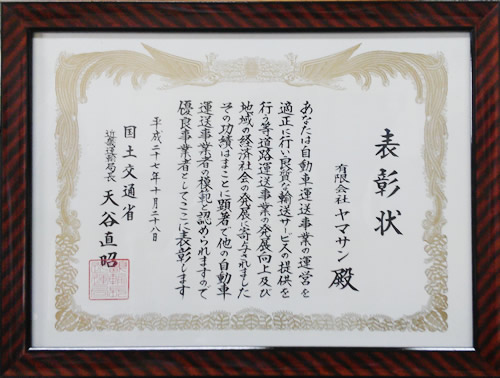 表彰状
有限会社 ヤマサン 殿
あなたは自動車運送事業の運営を
適正に行い良質な輸送サービスの提供を
行う等道路運送事業の発展向上及び
地域の経済社会の発展に寄与されました
その功績はまことに顕著で他の自動車
運送事業者の模範と認められますので
優良事業者としてここに表彰します
平成二十七年十月二十八日
国土交通省
近畿運輸局長 天谷直昭